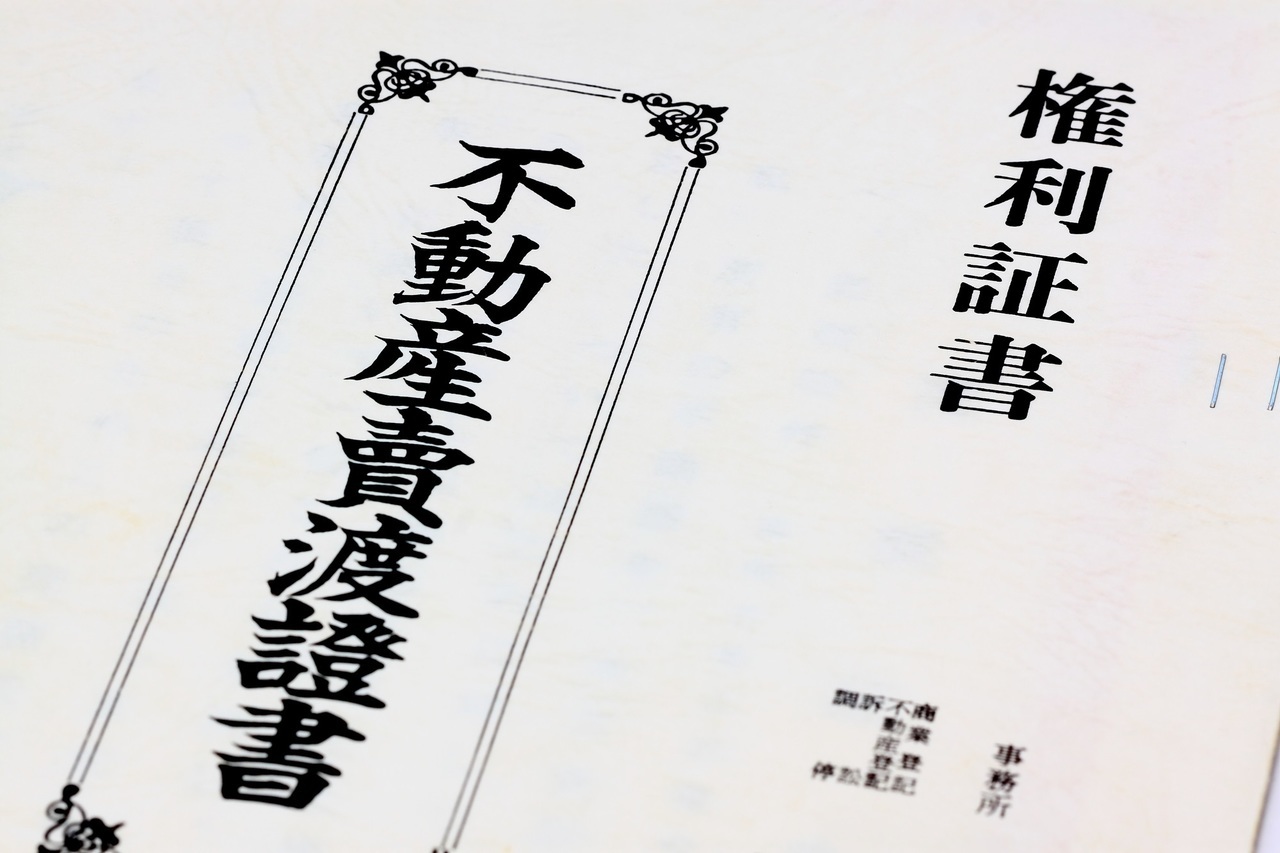 権利証書
事務所
商業登記
不動産登記
訴訟
調停
不動産賣渡證書